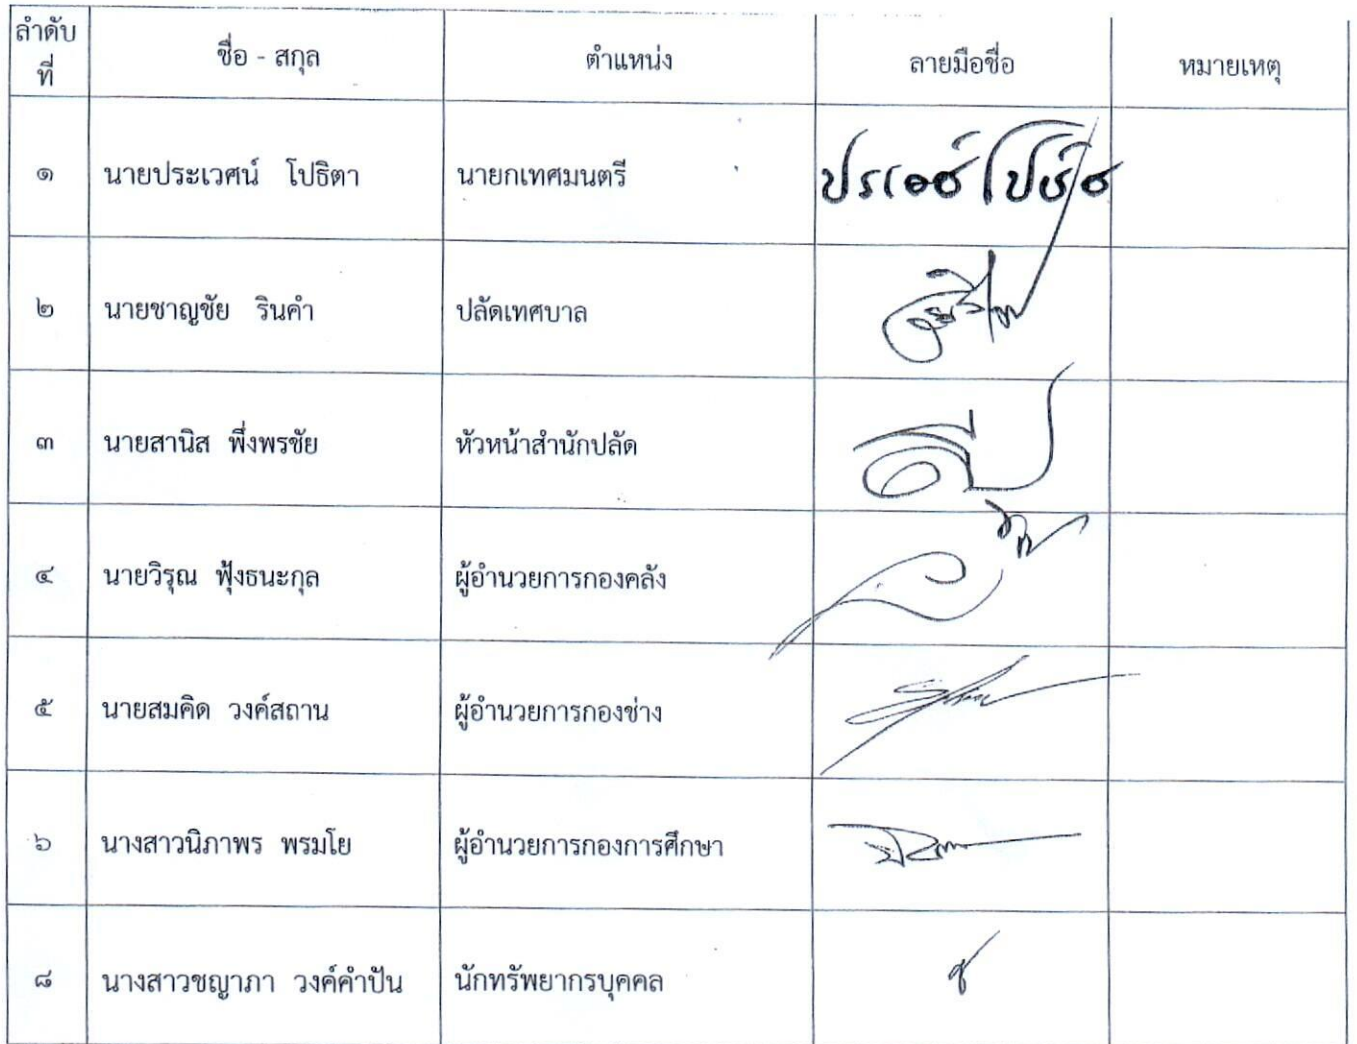 ลำดับ
ที่
ชื่อ - สกุล
ตำแหน่ง
ลายมือชื่อ
หมายเหตุ
๑ นายประเวศน์ โปธิตา นายกเทศมนตรี
๒ นายชาญชัย รินคำ ปลัดเทศบาล
๓ นายสานิส พึ่งพรชัย หัวหน้าสำนักปลัด
๔ นายวิรุณ ฟุ้งธนะกุล ผู้อำนวยการกองคลัง
๕ นายสมคิด วงค์สถาน ผู้อำนวยการกองช่าง
๖ นางสาวนิภาพร พรมโย ผู้อำนวยการกองการศึกษา
๘ นางสาวชญาภา วงค์คำปัน นักทรัพยากรบุคคล